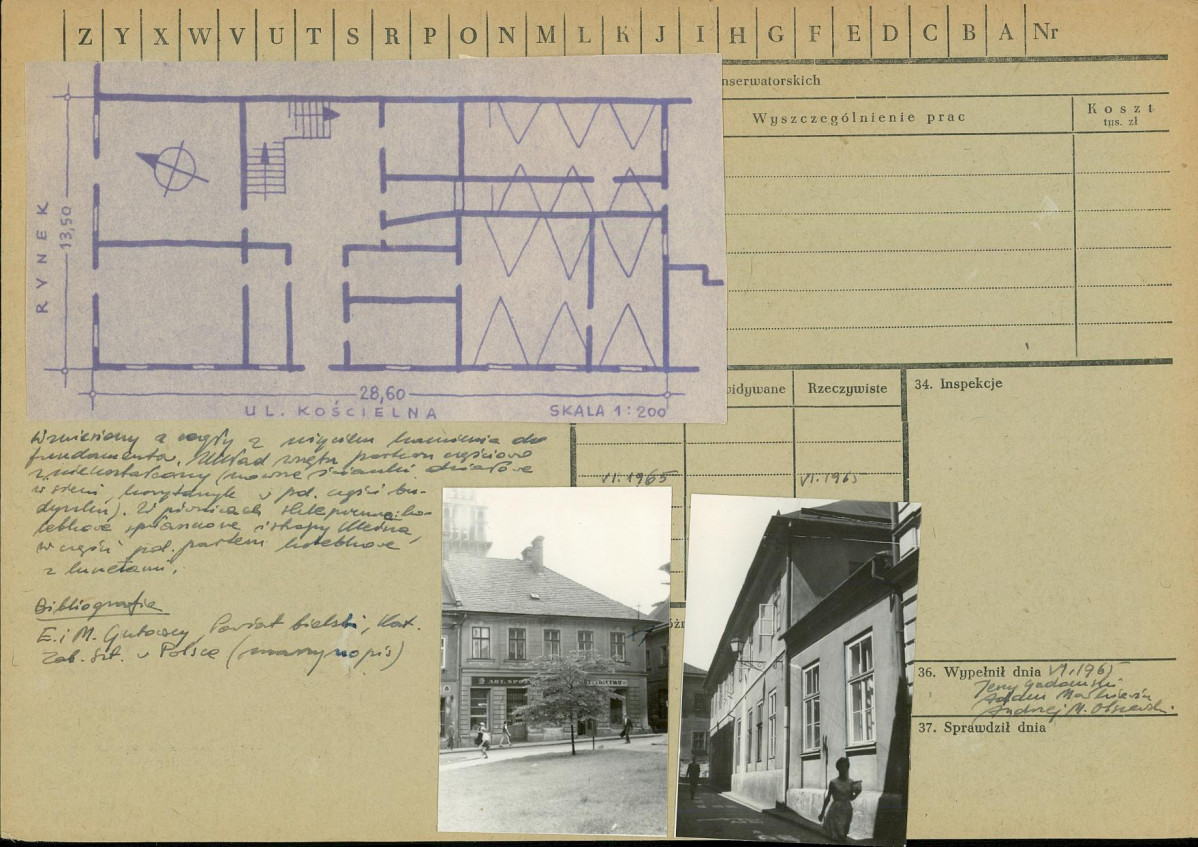 Z Y X W V U T S R P O N M L K J I H G F E D C B A Nr
nserwatorskich
Wyszczególnienie prac
Koszt
tys. zł
RYNEK
13,50
28,60
UL. KOŚCIELNA
SKALA 1:200
widywane
Rzeczywiste
34. Inspekcje
VI.1965
VI.1965
Wzniesiony z cegły z użyciem kamienia do
fundamentu. Układ wnętrz parteru częściowo
zniekształcony (nowe ścianki działowe
w sieni, korytarzyk w pd. części bu-
dynku). W piwnicach sklepienia ko-
lebkowe spłaszczone i stropy Kleina,
w części pd. parteru kolebkowe
z lunetami.
Bibliografia
E. i M. Gutowscy, Powiat bielski, Kat.
Zab. Szt. w Polsce (maszynopis)
ART. SPO
36. Wypełnił dnia VI.1965
Jerzy Gadomski
Adam Małkiewicz
Andrzej M. Olszewski
37. Sprawdził dnia